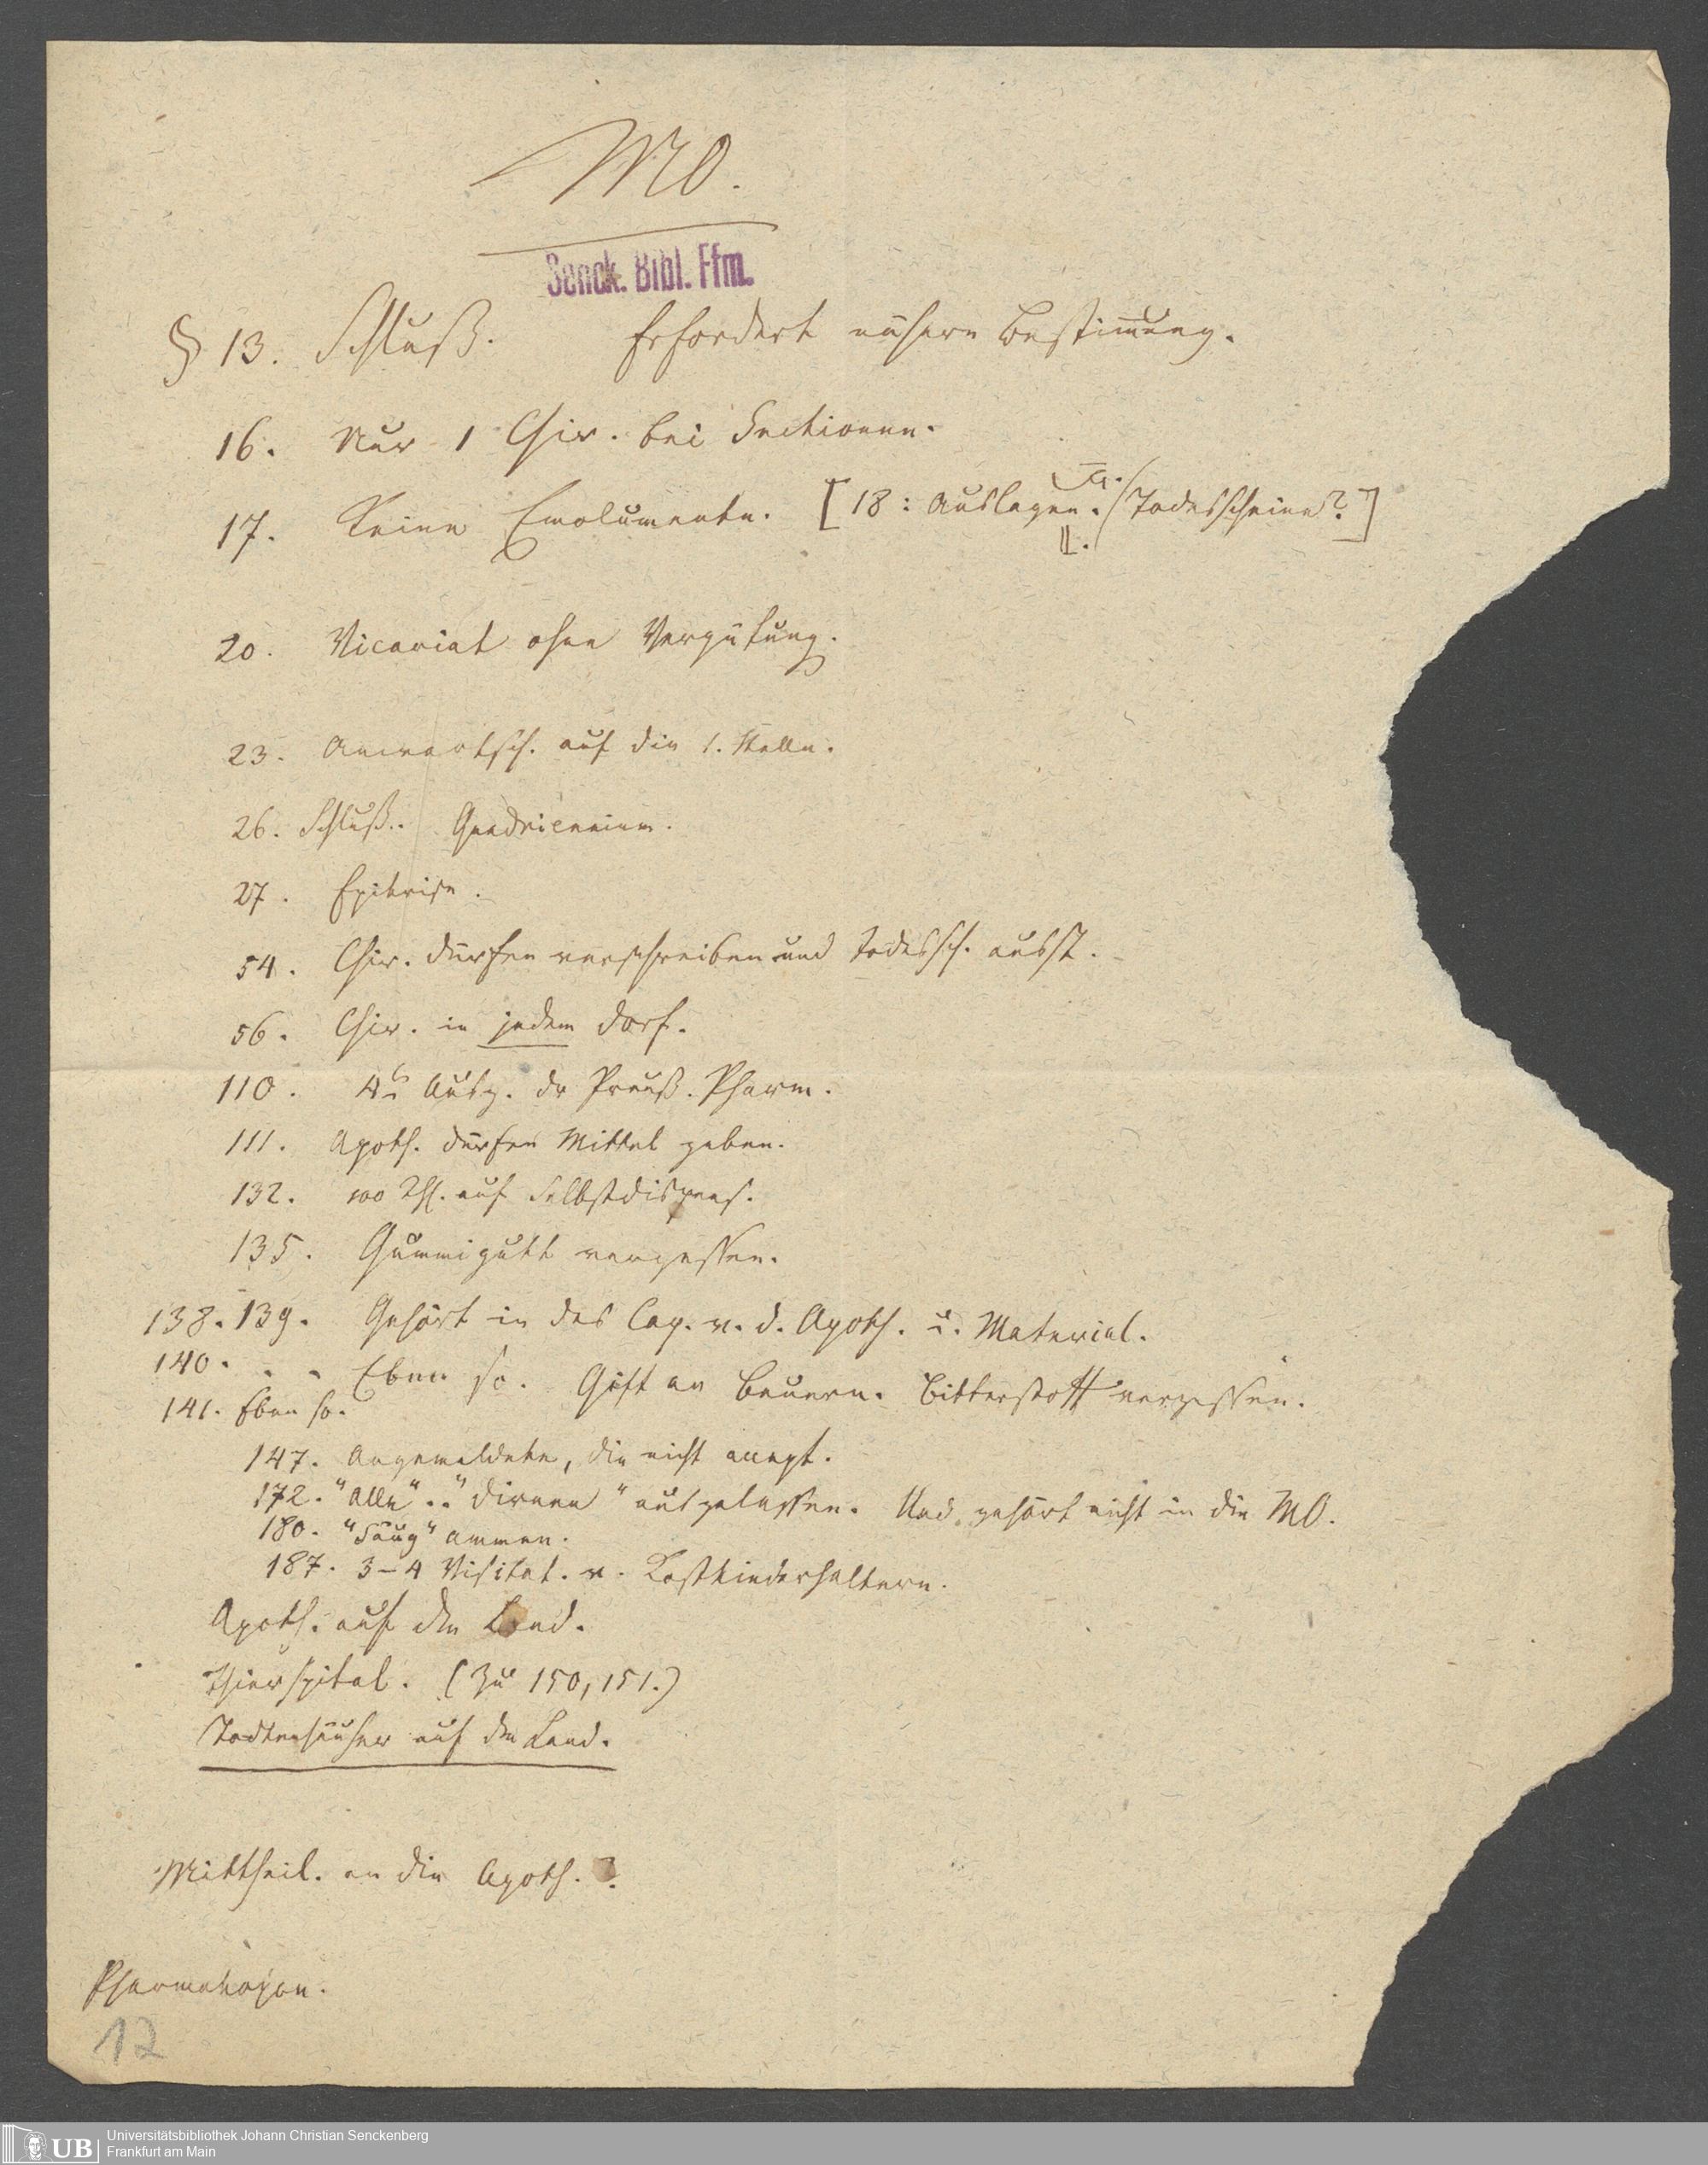 MO.
Senck. Bibl. Ffm.
§ 13. Schluß. Erfordert nähere Bestimung.
16. Nur 1 Chir. bei Sectionen.
17. Keine Emolumente. [18: Auslagen. (Todesscheine?]
II.
20. Vicariat ohne Vergütung.
23. Anwartsch. auf die 1. Stelle.
26. Schluß. Quadriennium.
27. Epikrise.
54. Chir. dürfen verschreiben und Todessch. ausst.
56. Chir. in jedem Dorf.
110. 4te Ausg. der Preuß. Pharm.
111. Apoth. dürfen Mittel geben.
132. 100 Thl. auf Selbstdispens.
135. Gummigutt vergessen.
138. 139. Gehört in das Cap. v. d. Apoth. u. Material.
140. . . Eben so. Gift an Bauern. Bitterstoff vergessen.
141. Eben so.
147. Angemeldete, die nicht accept.
172. "Alle" .. "Dirnen" ausgelassen. Und gehört nicht in die MO.
180. "Säug"ammen.
187. 3–4 Visitat. v. Kostkinderhaltern.
Apoth. auf dem Land.
Thierspital. (Zu 150, 151.)
Todtenhäuser auf dem Land.
Mittheil. an die Apoth.?
Pharmakopoe.
12
UB Universitätsbibliothek Johann Christian Senckenberg
Frankfurt am Main